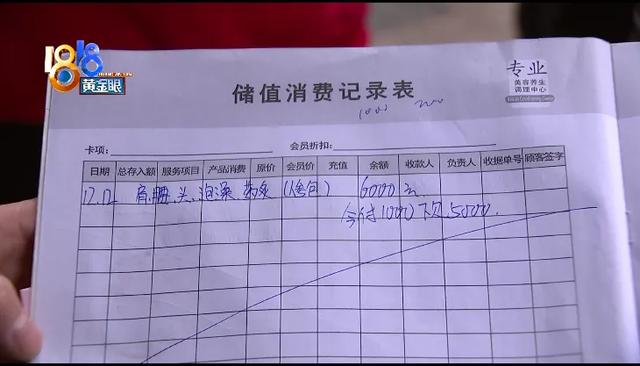 1818
黄金眼
专业
美容养生
调理中心
储值消费记录表
1000
卡项: 会员折扣:
日期 总存入额 服务项目 产品消费 原价 会员价 充值 余额 收款人 负责人 收据单号 顾客签字
12.12 肩.腰.头.泡澡.药灸(全包) 6000元
今付1000下欠5000.